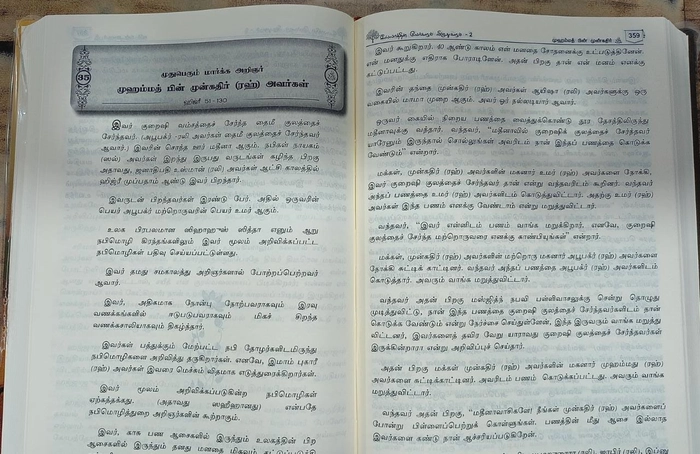 35
முதுபெரும் மார்க்க அறிஞர்
முஹம்மத் பின் முன்கதிர் (ரஹ்) அவர்கள்
ஹிஜ்ரீ 51 - 130
இவர் குறைஷி வம்சத்தைச் சேர்ந்த தைமீ குலத்தைச்
சேர்ந்தவர். (அபூபக்ர் -ரலி அவர்கள் தைமீ குலத்தைச் சேர்ந்தவர்
ஆவார்.) இவரின் சொந்த ஊர் மதீனா ஆகும். நபிகள் நாயகம்
(ஸல்) அவர்கள் இறந்து இருபது வருடங்கள் கழிந்த பிறகு
அதாவது, ஜனாதிபதி உஸ்மான் (ரலி) அவர்கள் ஆட்சி காலத்தில்
ஹிஜ்ரீ முப்பதாம் ஆண்டு இவர் பிறந்தார்.
இவருடன் பிறந்தவர்கள் இரண்டு பேர். அதில் ஒருவரின்
பெயர் அபூபக்ர் மற்றொருவரின் பெயர் உமர் ஆகும்.
உலக பிரபலமான ஸிஹாஹுஸ் ஸித்தா எனும் ஆறு
நபிமொழி கிரந்தங்களிலும் இவர் மூலம் அறிவிக்கப்பட்ட
நபிமொழிகள் பதிவு செய்யப்பட்டுள்ளது.
இவர் தமது சமகாலத்து அறிஞர்களால் போற்றப்பெற்றவர்
ஆவார்.
இவர், அதிகமாக நோன்பு நோற்பவராகவும் இரவு
வணக்கங்களில் ஈடுபடுபவராகவும் மிகச் சிறந்த
வணக்கசாலியாகவும் திகழ்ந்தார்.
இவர்கள் பத்துக்கும் மேற்பட்ட நபி தோழர்களிடமிருந்து
நபிமொழிகளை அறிவித்து தருகிறார்கள். எனவே, இமாம் புகாரீ
(ரஹ்) அவர்கள் இவரை மெச்சும் விதமாக எடுத்துரைக்கிறார்கள்.
இவர் மூலம் அறிவிக்கப்படுகின்ற நபிமொழிகள்
ஏற்கத்தக்கது. (அதாவது ஸஹீஹானது) என்பதே
நபிமொழித்துறை அறிஞர்களின் கூற்றாகும்.
இவர், காசு பண ஆசைகளில் இருந்தும் உலகத்தின் பிற
ஆசைகளில் இருந்தும் தனது மனதை மிகவும்
- 2
முஹம்மத் பின் முன்கதிர்
359
இவர் கூறுகிறார். 40 ஆண்டு காலம் என் மனதை சோதனைக்கு உட்படுத்தினேன்.
என் மனதுக்கு எதிராக போராடினேன். அதன் பிறகு தான் என் மனம் எனக்கு
கட்டுப்பட்டது.
இவரின் தந்தை முன்கதிர் (ரஹ்) அவர்கள் ஆயிஷா (ரலி) அவர்களுக்கு ஒரு
வகையில் மாமா முறை ஆகும். அவர் ஓர் நல்லடியார் ஆவார்.
ஒருவர் கையில் நிறைய பணத்தை வைத்துக்கொண்டு தூர தேசத்திலிருந்து
மதீனாவுக்கு வந்தார். வந்தவர், “மதீனாவில் குறைஷிக் குலத்தைச் சேர்ந்தவர்
யாரேனும் இருந்தால் சொல்லுங்கள் அவரிடம் நான் இந்தப் பணத்தை கொடுக்க
வேண்டும்” என்றார்.
மக்கள், முன்கதிர் (ரஹ்) அவர்களின் மகனார் உமர் (ரஹ்) அவர்களை நோக்கி,
இவர் குறைஷி குலத்தைச் சேர்ந்தவர் தான் என்று வந்தவரிடம் கூறினர். வந்தவர்
அந்தப் பணத்தை உமர் (ரஹ்) அவர்களிடம் கொடுத்துவிட்டார். அதற்கு உமர் (ரஹ்)
அவர்கள் இந்த பணம் எனக்கு வேண்டாம் என்று மறுத்துவிட்டார்.
வந்தவர், “இவர் என்னிடம் பணம் வாங்க மறுக்கிறார். எனவே, குறைஷி
குலத்தைச் சேர்ந்த மற்றொருவரை எனக்கு காண்பியுங்கள்” என்றார்.
மக்கள், முன்கதிர் (ரஹ்) அவர்களின் மற்றொரு மகனார் அபூபக்ர் (ரஹ்) அவர்களை
நோக்கி சுட்டிக் காட்டினர். வந்தவர் அந்தப் பணத்தை அபூபக்ர் (ரஹ்) அவர்களிடம்
கொடுத்தார். அவரும் வாங்க மறுத்துவிட்டார்.
வந்தவர் அதன் பிறகு மஸ்ஜித்ந் நபவி பள்ளிவாசலுக்கு சென்று தொழுது
முடித்துவிட்டு, நான் இந்த பணத்தை குறைஷி குலத்தைச் சேர்ந்தவர்களிடம் தான்
கொடுக்க வேண்டும் என்று நேர்ச்சை செய்துள்ளேன், இந்த இருவரும் வாங்க மறுத்து
விட்டனர், இவர்களைத் தவிர வேறு யாராவது குறைஷி குலத்தைச் சேர்ந்தவர்கள்
இருக்கின்றாரா என்று அறிவிப்புச் செய்தார்.
அதன் பிறகு மக்கள் முன்கதிர் (ரஹ்) அவர்களின் மகனார் முஹம்மது (ரஹ்)
அவர்களை கட்டிக்காட்டினர். அவரிடம் பணம் கொடுக்கப்பட்டது. அவரும் வாங்க
மறுத்துவிட்டார்.
வந்தவர் அதன் பிறகு, “மதீனாவாசிகளே! நீங்கள் முன்கதிர் (ரஹ்) அவர்களைப்
போன்று பிள்ளைப்பெற்றுக் கொள்ளுங்கள். பணத்தின் மீது ஆசை இல்லாத
இவர்களை கண்டு நான் ஆச்சரியப்படுகிறேன்.